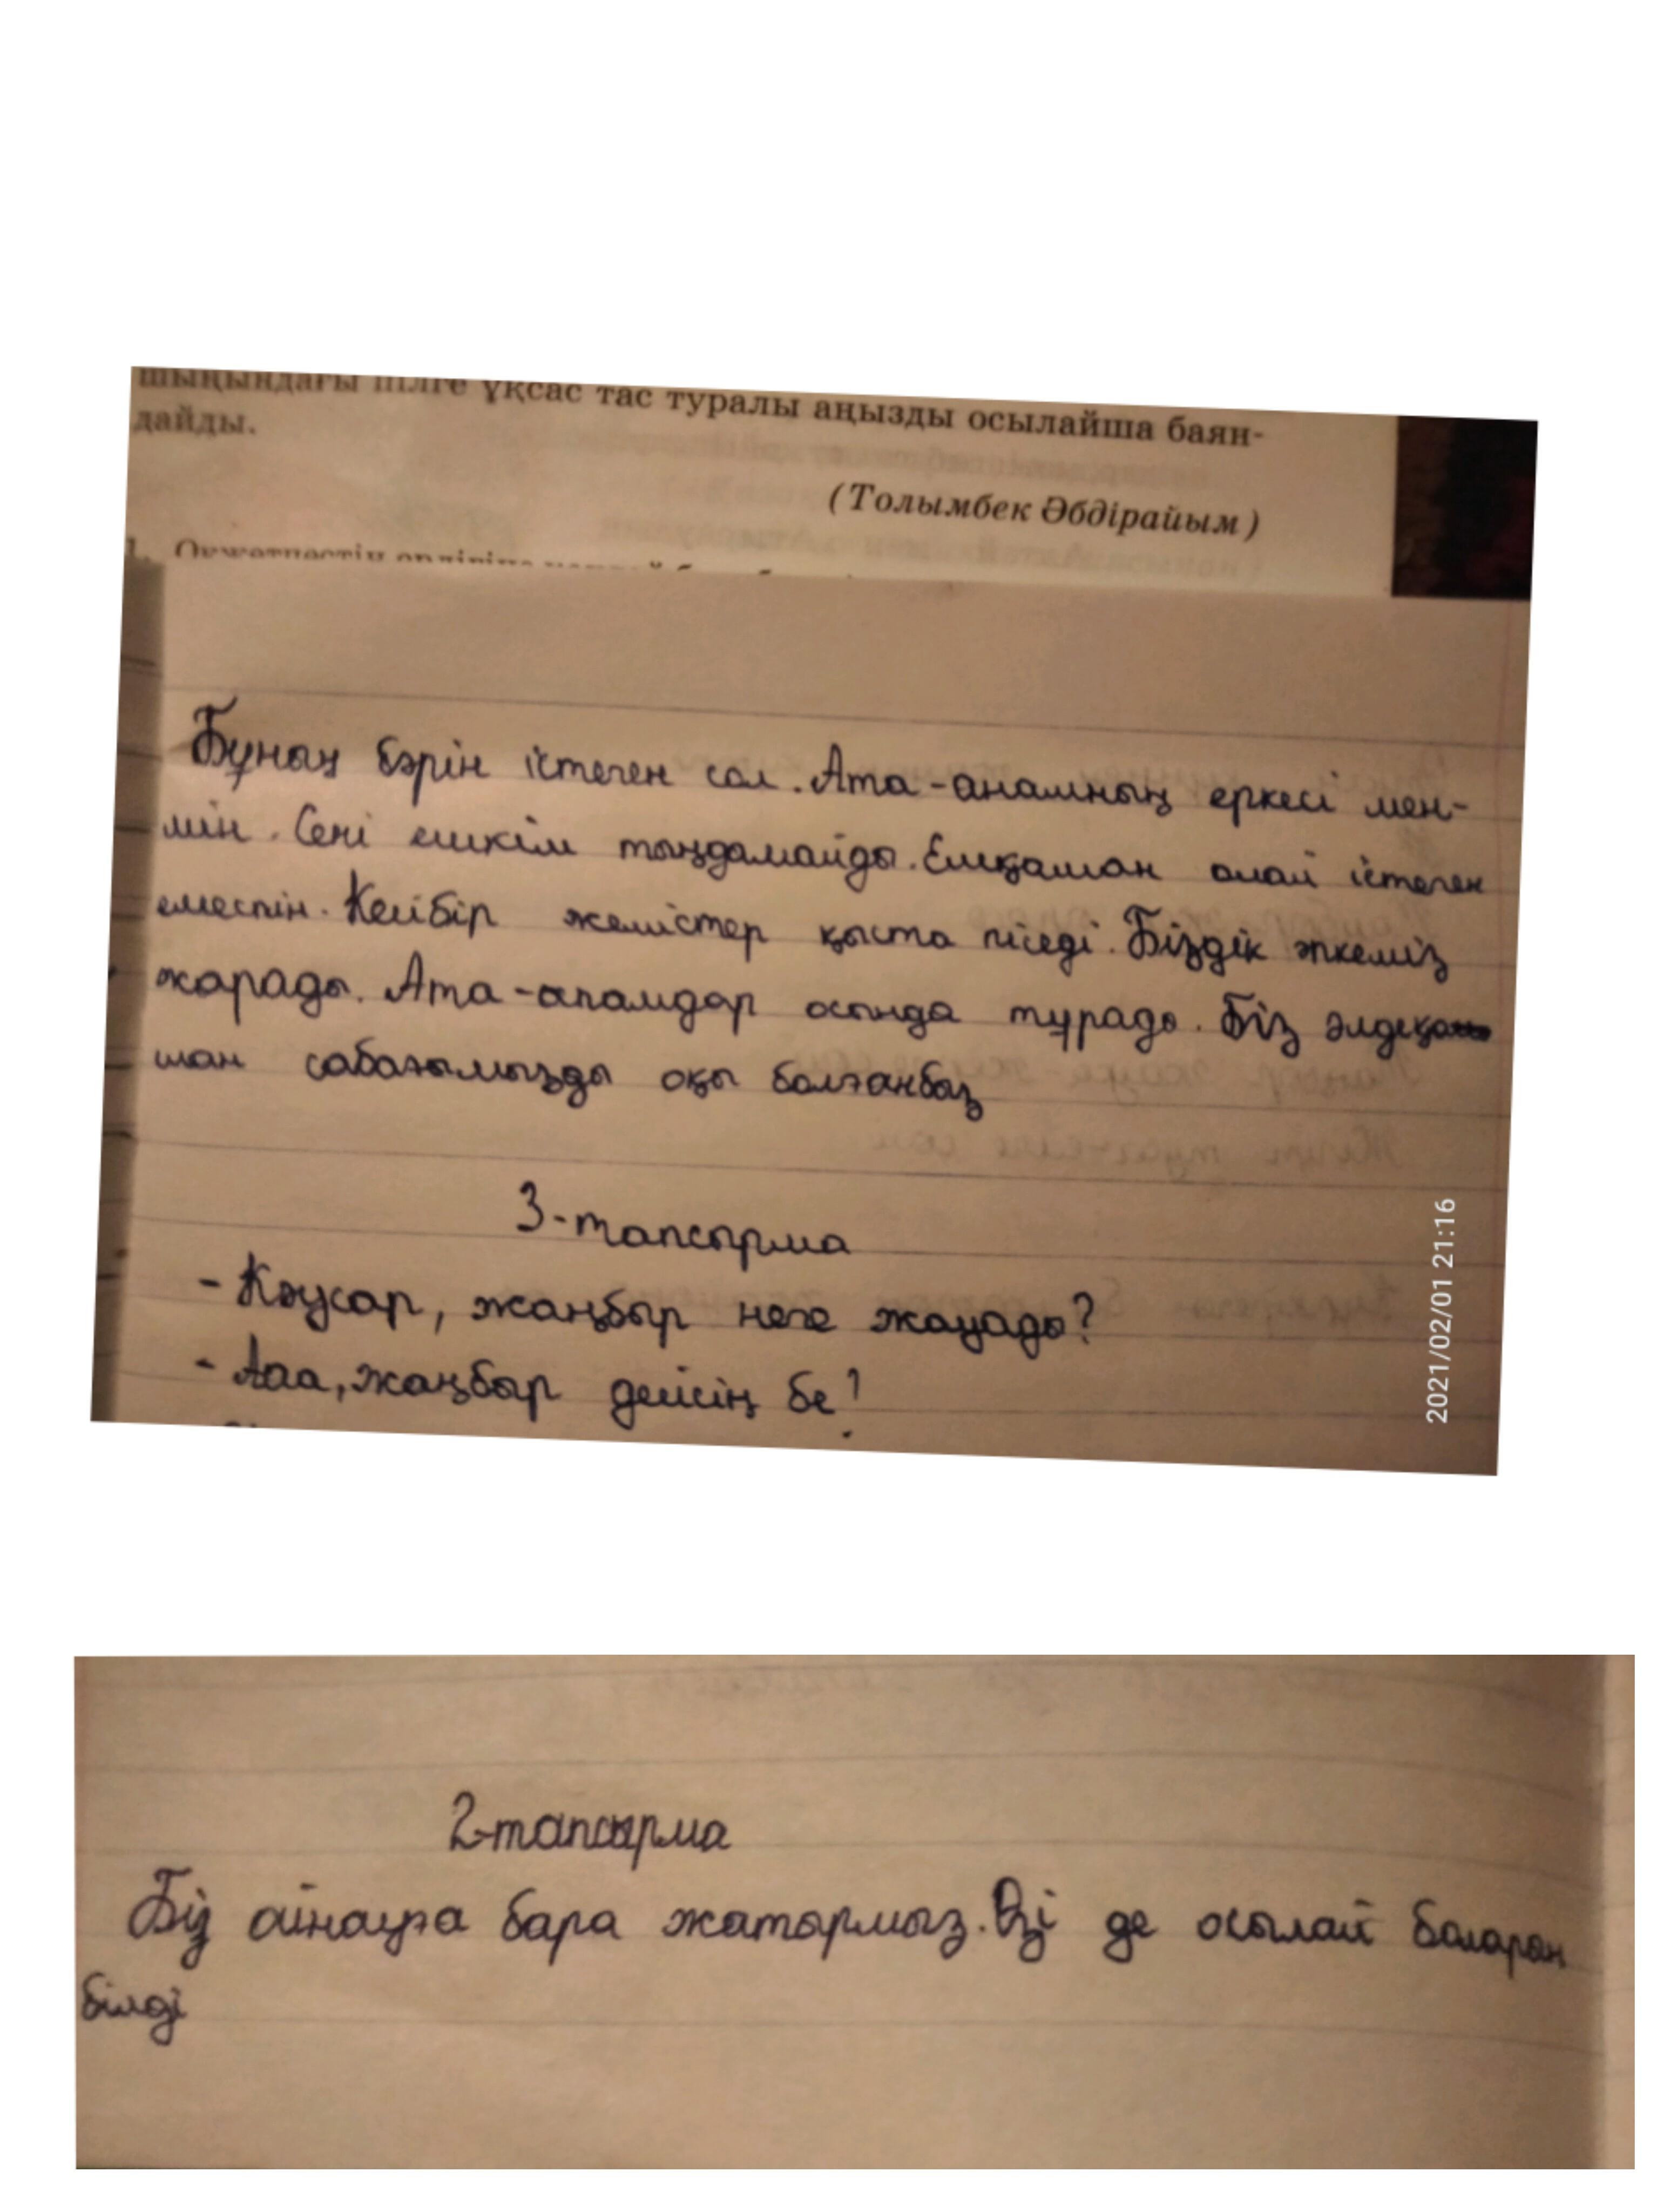 шыңындағы пілге ұқсас тас туралы аңызды осылайша баян-
дайды.
(Толымбек Әбдірайым)
1. Оқжетпестің ерлігіне
Бұның бәрін істеген сол. Ата-анамның еркесі мен-
мін. Сені ешкім тыңдамайды. Ешқашан олай істеген
емеспін. Кейбір жемістер қыста піседі. Біздік әпкеміз
жарады. Ата-апамдар осында тұрады. Біз әлдеқа
шан сабағымызды оқы болғанбыз
3-тапсырма
- Кәусар, жаңбыр неге жауады?
- Ааа, жаңбыр дейсің бе!
2021/02/01 21:16
2-тапсырма
Біз айнауға бара жатырмыз. Өзі де осылай боларын
білді